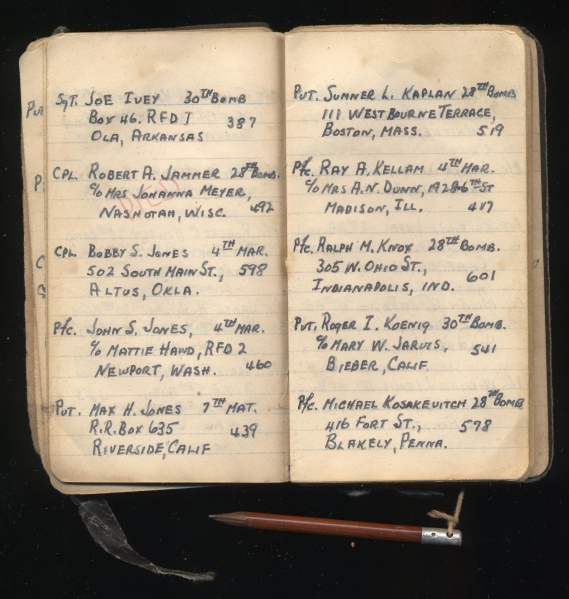 Sgt. JOE IVEY 30TH BOMB
BOX 46. RFD 1 387
OLA, ARKANSAS
CPL. ROBERT A. JAMMER 28TH BOMB.
c/o MRS JOHANNA MEYER,
NASHOTAH, WISC. 492
DIED
CPL. BOBBY S. JONES 4TH MAR.
502 SOUTH MAIN ST., 598
ALTUS, OKLA.
Pfc. JOHN S. JONES, 4TH MAR.
c/o MATTIE HAND, RFD 2
NEWPORT, WASH. 460
PVT. MAX H. JONES 7TH MAT.
R.R. BOX 635 439
RIVERSIDE, CALIF
PVT. SUMNER L. KAPLAN 28TH BOMB
111 WESTBOURNE TERRACE,
BOSTON, MASS. 519
Pfc. RAY A. KELLAM 4TH MAR.
c/o MRS A.N. DUNN, 1928-6TH ST
MADISON, ILL. 417
Pfc. RALPH M. KNOX 28TH BOMB.
305 W. OHIO ST., 601
INDIANAPOLIS, IND.
PVT. ROGER I. KOENIG 30TH BOMB.
c/o MARY W. JARVIS, 541
BIEBER, CALIF.
Pfc. MICHAEL KOSAKEVITCH 28TH BOMB
416 FORT ST., 578
BLAKELY, PENNA.